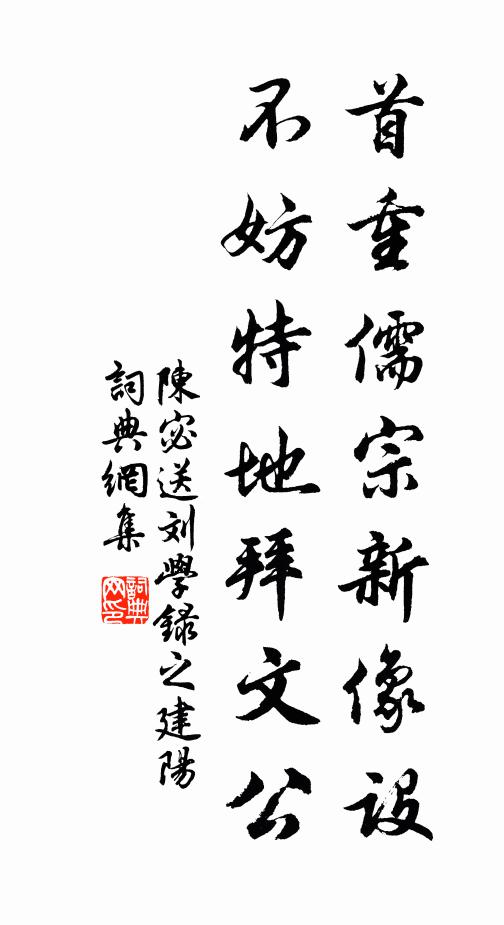 首重儒宗新像設
不妨特地拜文公
陳宓送刘學録之建陽
詞典網集
詞典网印